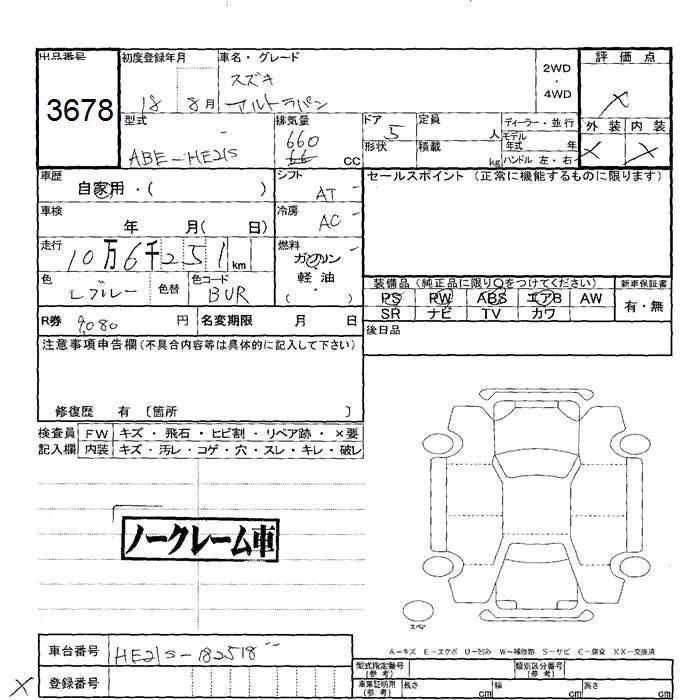 出品番号 初度登録年月 車名・グレード 2WD・4WD 評価点
3678 18年 8月 スズキ
アルトラパン
X
型式 排気量 ドア 定員 人 ディーラー・並行 外装 内装
ABE-HE21S 660 cc 5 形状 積載 kg モデル年式 年 ハンドル 左・右 X X
車歴 自家用・( ) シフト AT セールスポイント (正常に機能するものに限ります)
車検 年 月( 日) 冷房 AC
走行 10万6千251km 燃料 ガソリン・軽油・( )
色 Lブルー 色替 色コード BUR
装備品 (純正品に限り○をつけてください) 新車保証書
PS PW ABS エアB AW 有・無
SR ナビ TV カワ
R券 9080 円 名変期限 月 日 後日品
注意事項申告欄(不具合内容等は具体的に記入して下さい)
修復歴 有 〔箇所 〕
検査員 FW キズ・飛石・ヒビ割・リペア跡・×要
記入欄 内装 キズ・汚レ・コゲ・穴・スレ・キレ・破レ
ノークレーム車
スペア
A-キズ E-エクボ U-凹み W-補修跡 S-サビ C-腐食 XX-交換済
車台番号 HE21S-182518
X 登録番号
型式指定番号(参考) 類別区分番号(参考)
車庫証明用(参考) 長さ cm 幅 cm 高さ cm